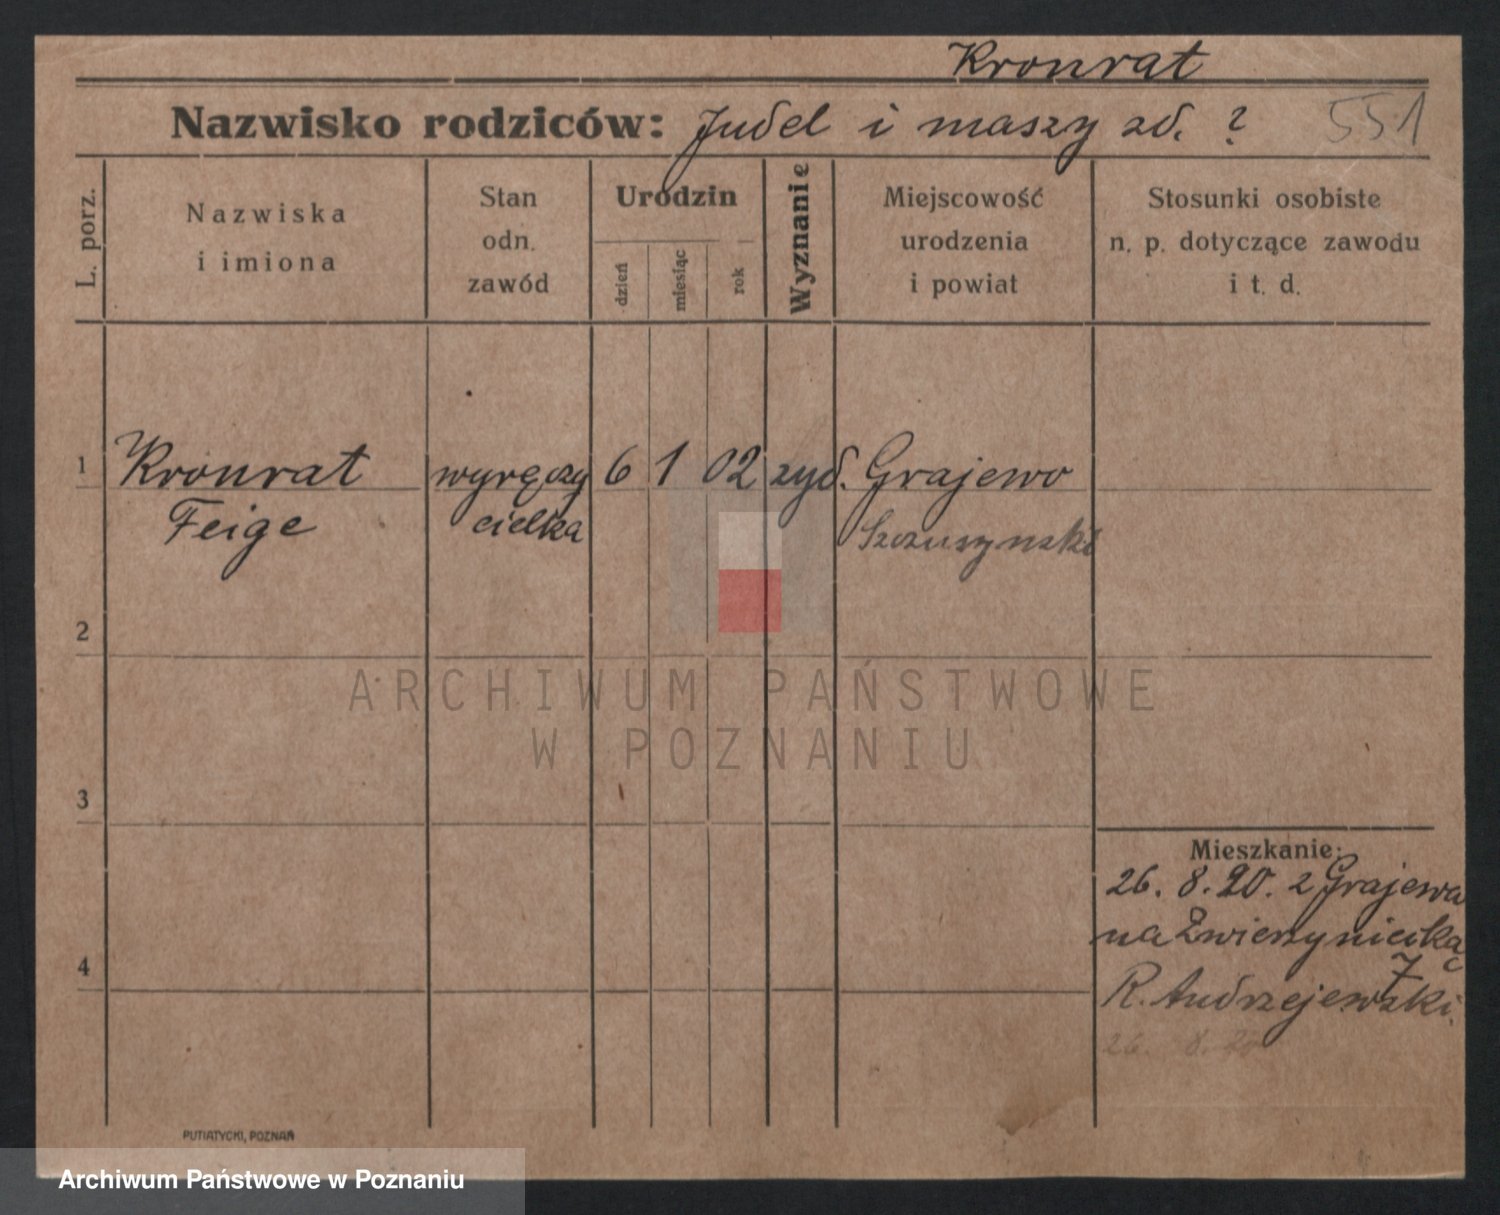 Kronrat
Nazwisko rodziców: Judel i maszy zd. ? 551
L. porz.
Nazwiska
i imiona
Stan
odn.
zawód
Urodzin
dzień
miesiąc
rok
Wyznanie
Miejscowość
urodzenia
i powiat
Stosunki osobiste
n. p. dotyczące zawodu
i t. d.
1 Kronrat wyręczy 6 1 02 zyd. Grajewo
Feige cielka Szczuczynski
2
ARCHIWUM PAŃSTWOWE
W POZNANIU
3
Mieszkanie:
26. 8. 20. z Grajewa
na Zwierzyniecką
7
4
R. Andrzejewski.
26. 8. 20
PUTIATYCKI, POZNAŃ
Archiwum Państwowe w Poznaniu